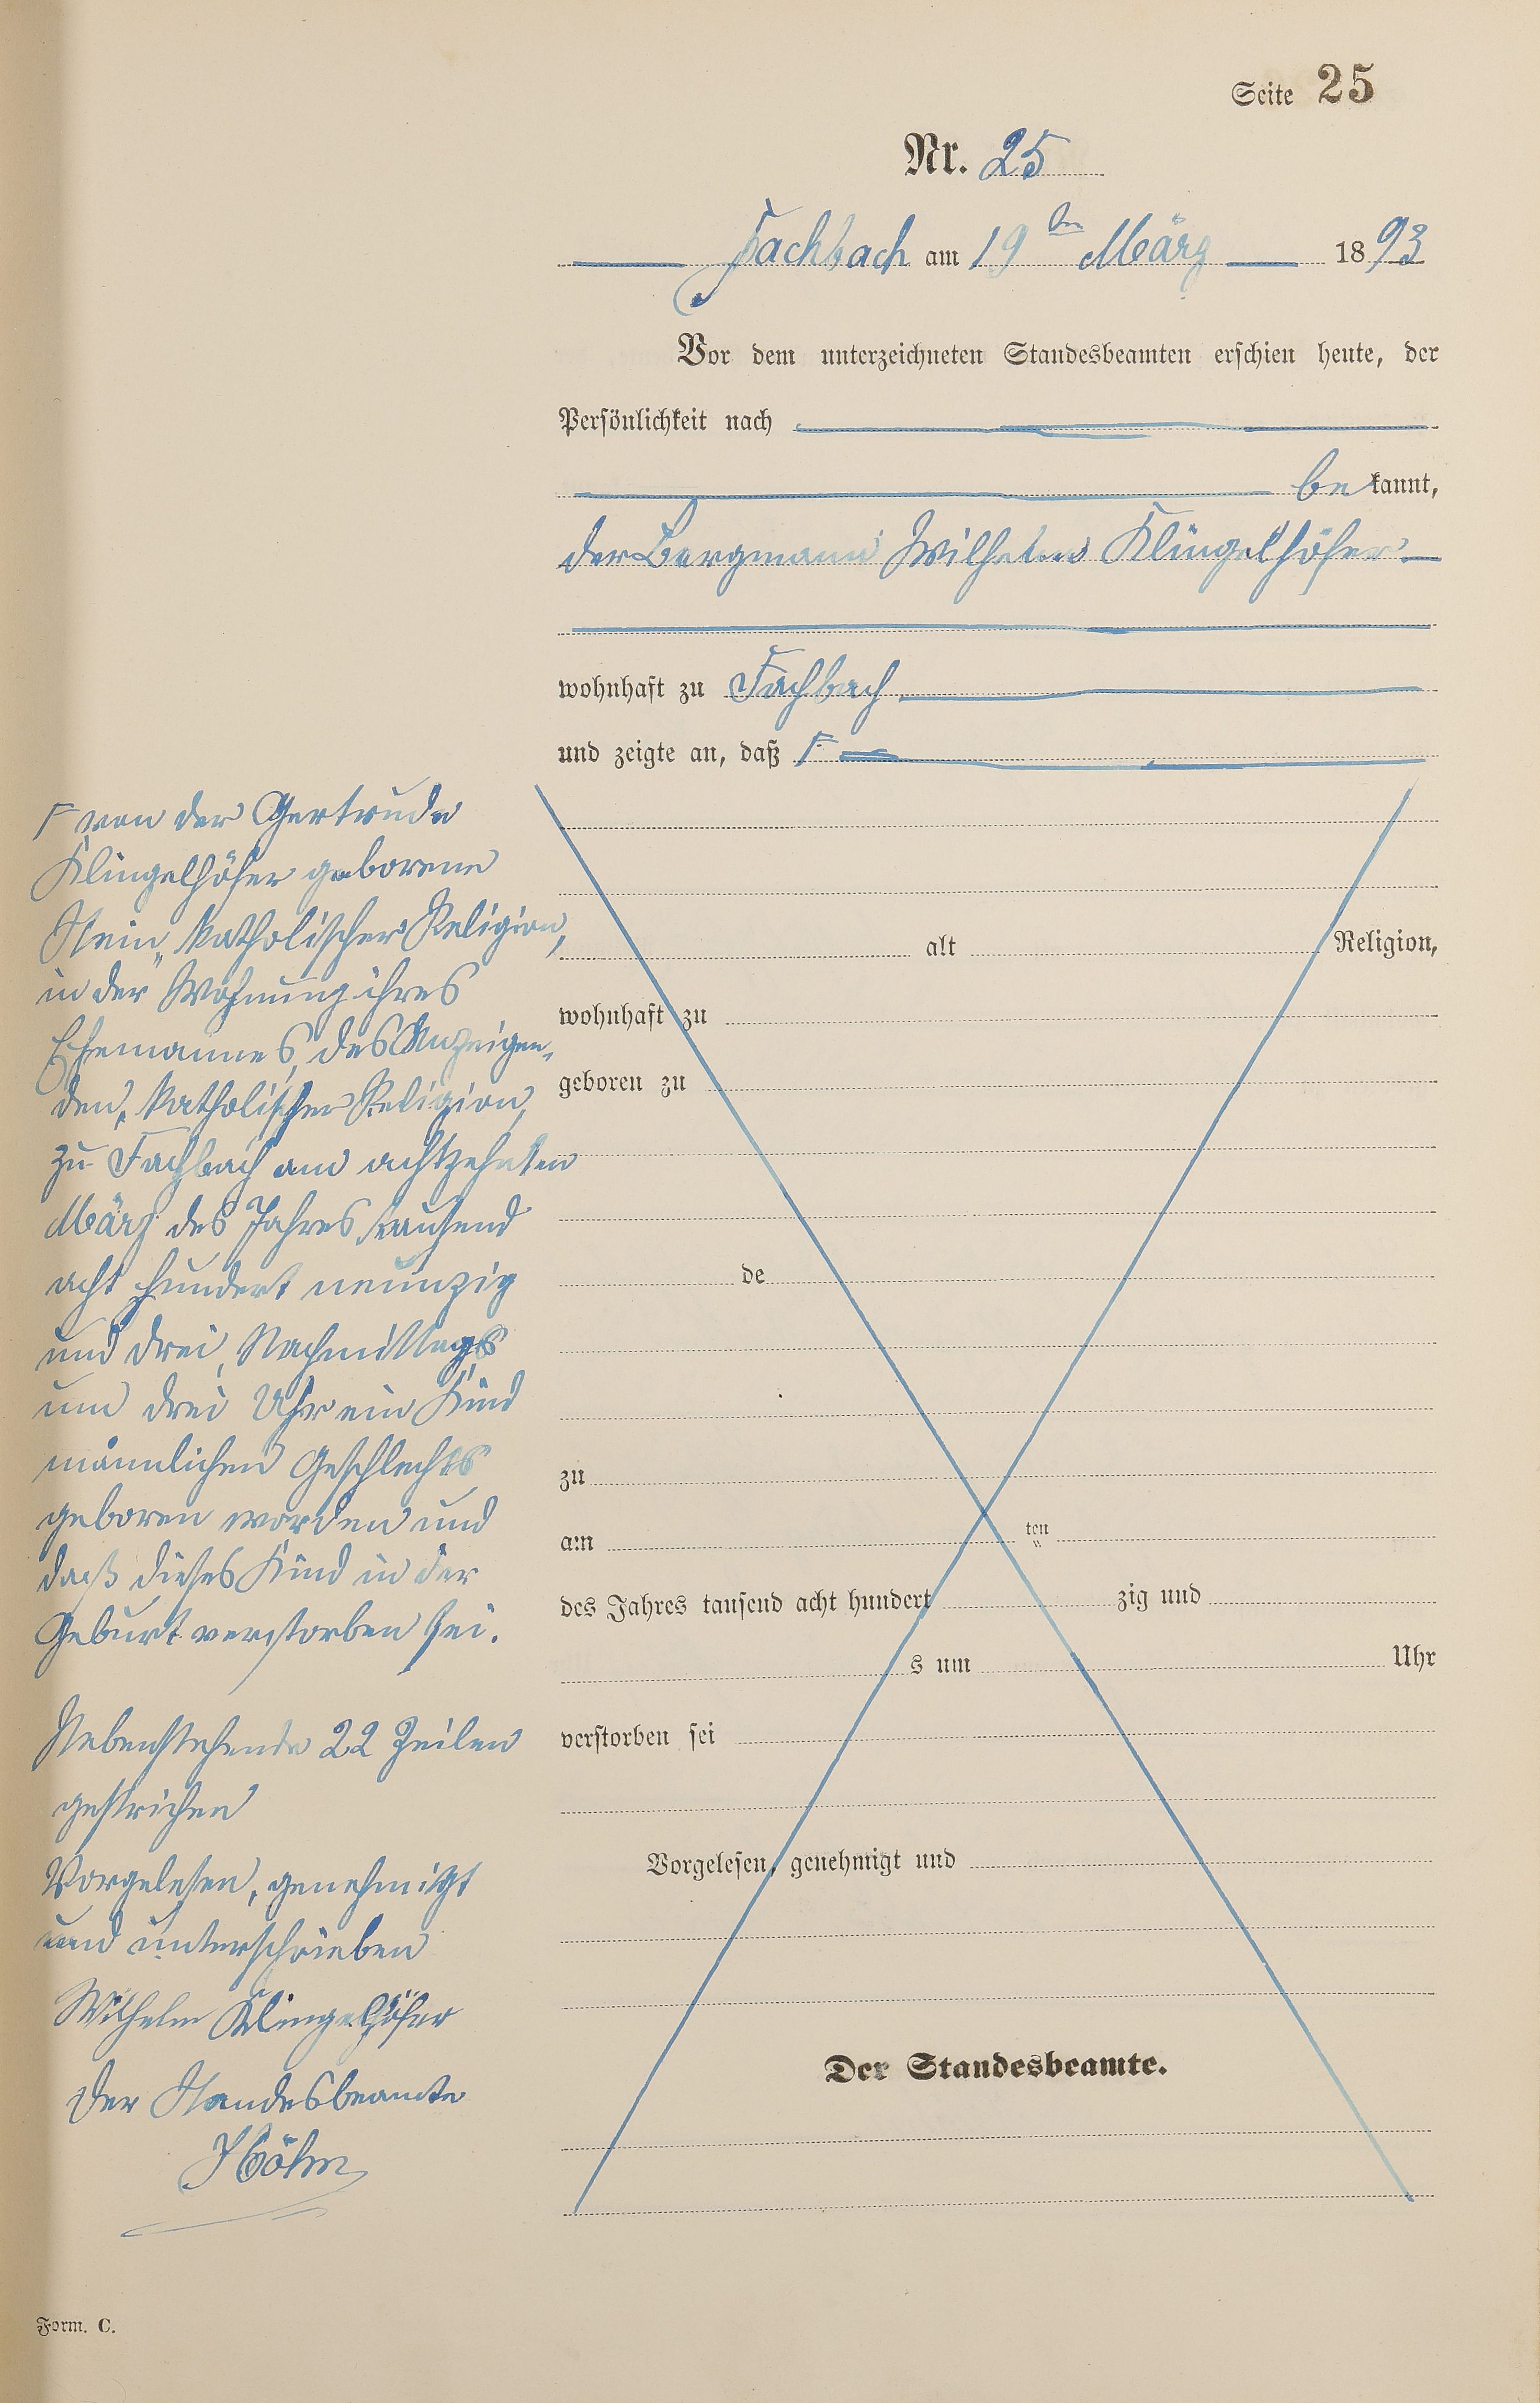 Seite 25
Nr. 25
Fachbach am 19ten März 1893
Vor dem unterzeichneten Standesbeamten erschien heute, der
Persönlichkeit nach
bekannt,
der Bergmann Wilhelm Klingelhöfer
wohnhaft zu Fachbach
und zeigte an, daß Γ
Γ von der Gertrude
Klingelhöfer geborene
Stein, katholischer Religion,
in der Wohnung ihres
Ehemannes, des Anzeigen-
den, katholischer Religion,
zu Fachbach am achtzehnten
März des Jahres tausend
acht hundert neunzig
und drei, Nachmittags
um drei Uhr ein Kind
männlichen Geschlechts
geboren worden und
daß dieses Kind in der
Geburt verstorben sei.
Nebenstehende 22 Zeilen
gestrichen
Vorgelesen, genehmigt
und unterschrieben
Wilhelm Klingelhöfer
Der Standesbeamte
Höhn
alt Religion,
wohnhaft zu
geboren zu
de
zu
am ten
des Jahres tausend acht hundert zig und
s um Uhr
verstorben sei
Vorgelesen, genehmigt und
Der Standesbeamte.
Form. C.